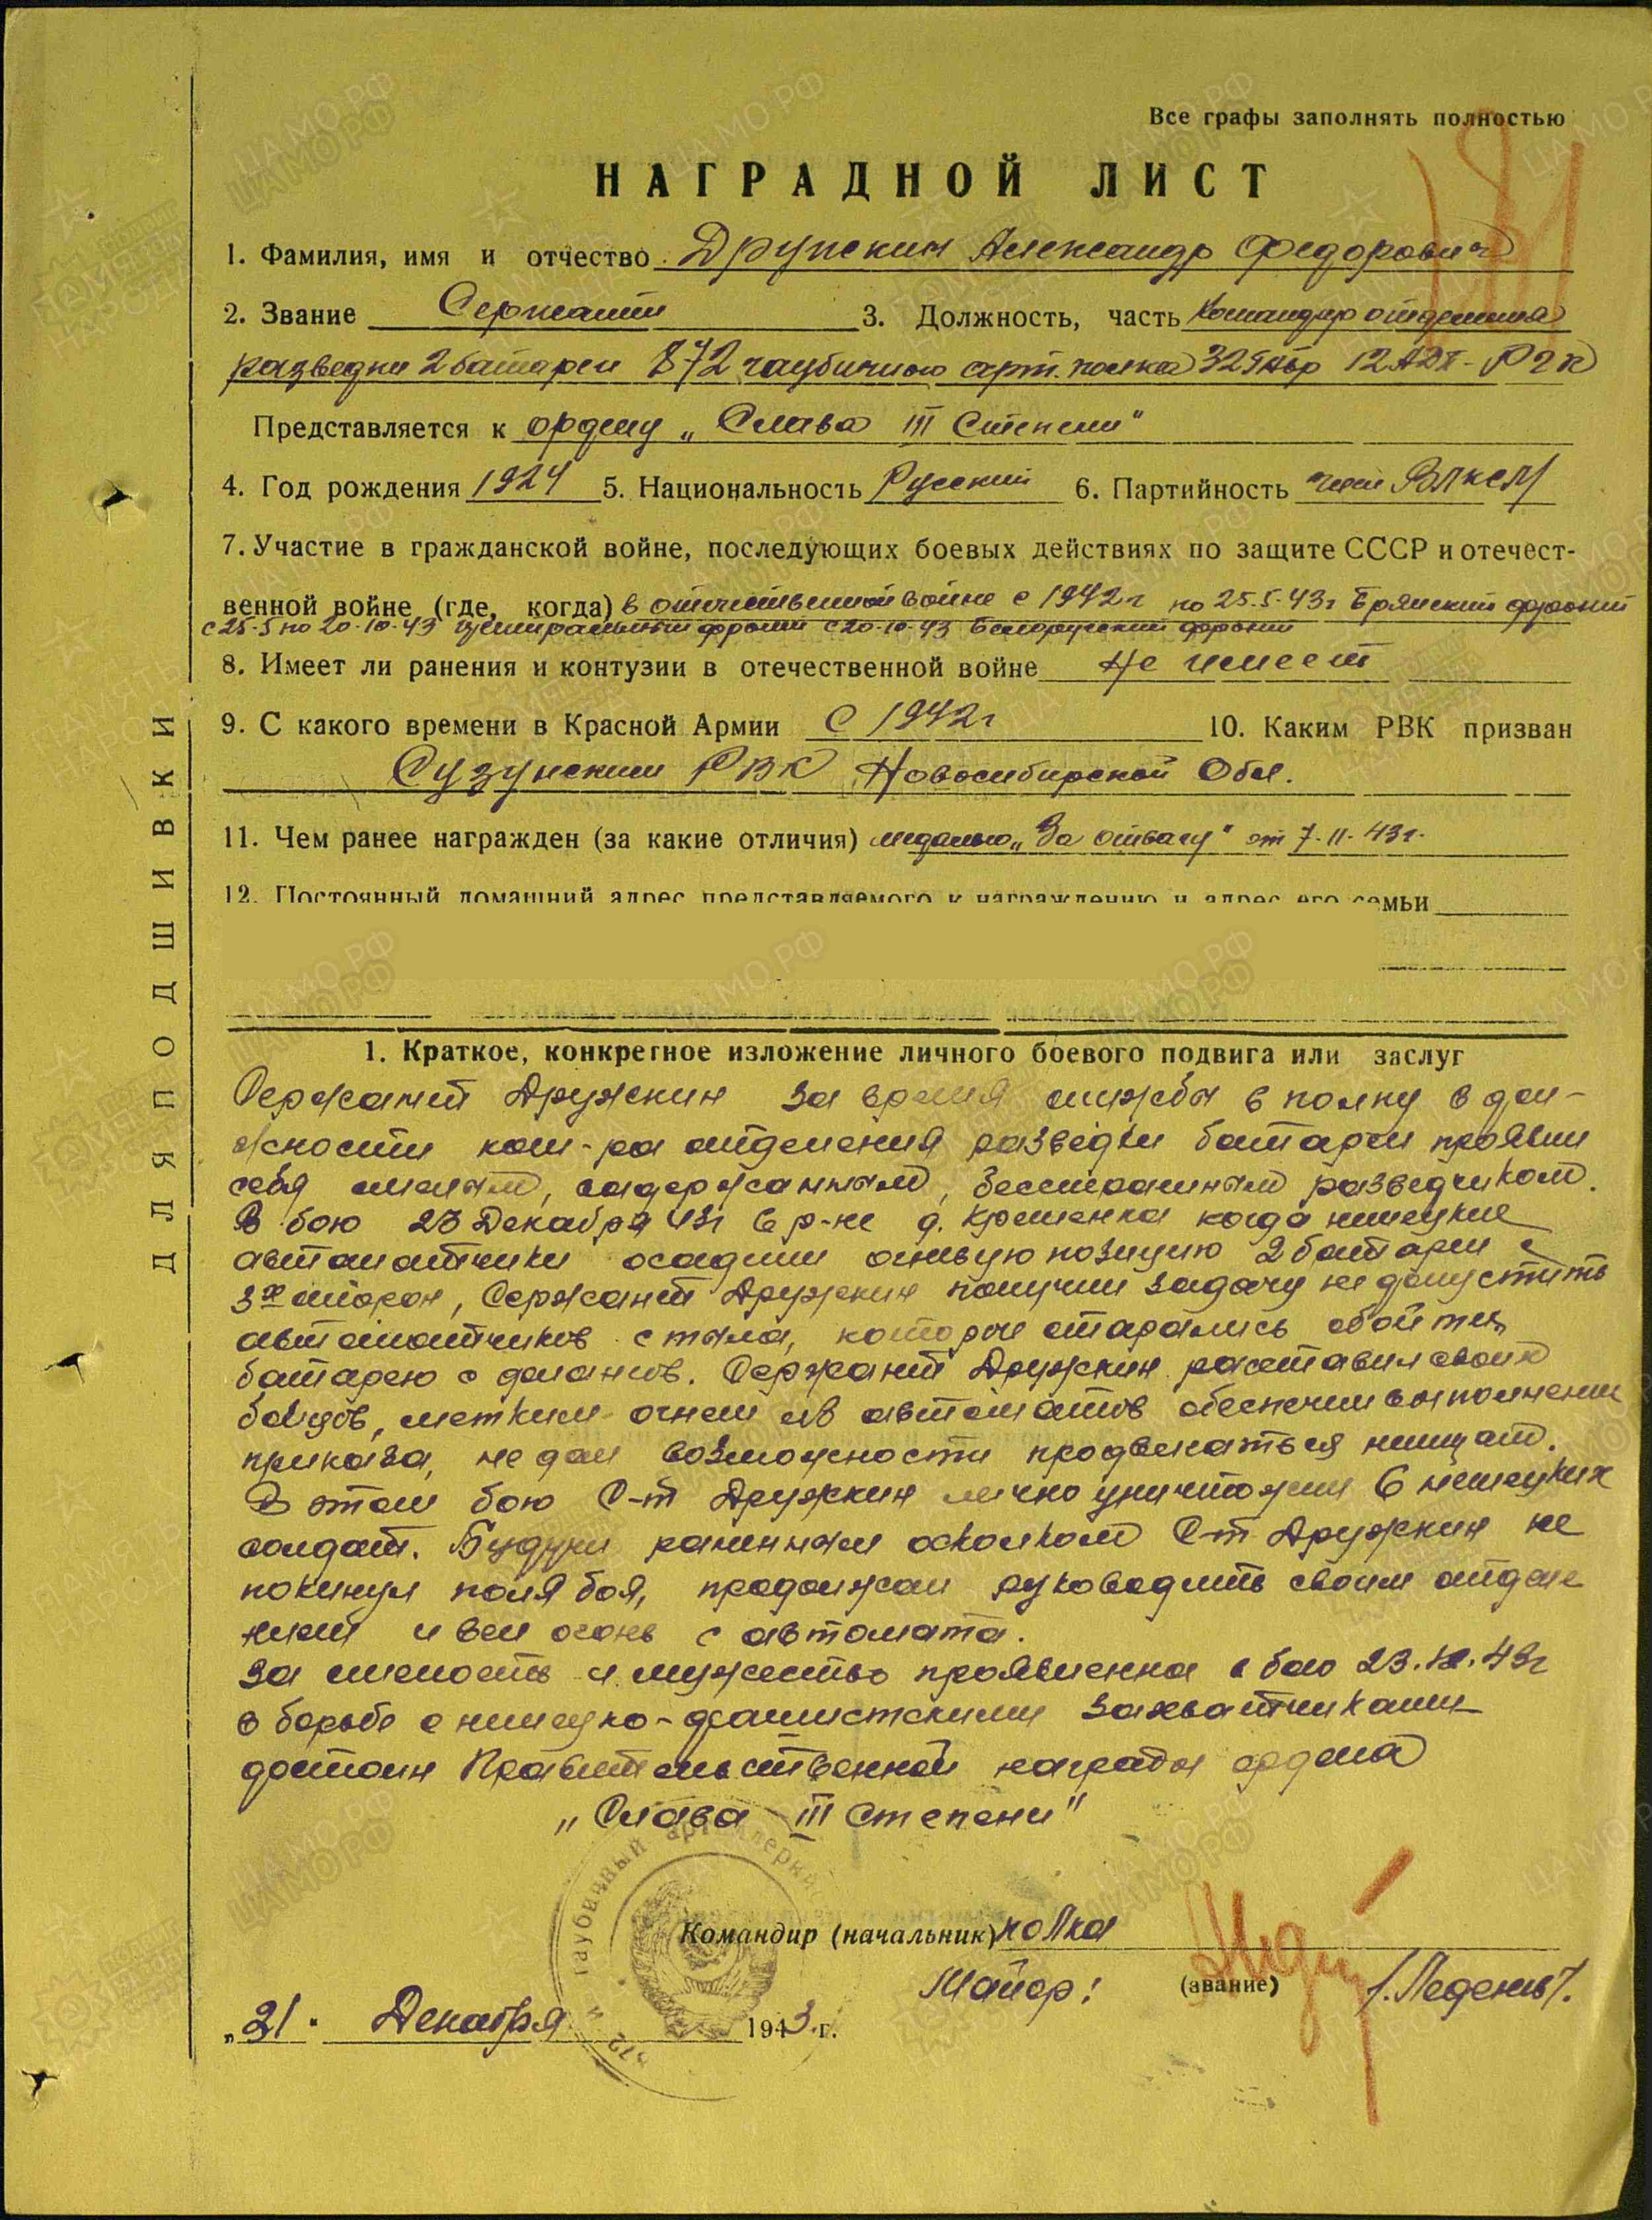 Все графы заполнять полностью
НАГРАДНОЙ ЛИСТ
1. Фамилия, имя и отчество Дружкин Александр Федорович
2. Звание Сержант 3. Должность, часть Командир отделения
разведки 2 батареи 872 гаубичного арт. полка 32 ГАбр 12 АДП - РГК
Представляется к ордену „Слава III Степени"
4. Год рождения 1924 5. Национальность Русский 6. Партийность член ВЛКСМ
7. Участие в гражданской войне, последующих боевых действиях по защите СССР и отечест-
венной войне (где, когда) в отечественной войне с 1942г по 25.5.43г Брянский фронт
с 25-5 по 20-10-43 Центральный фронт с 20-10-43 Белорусский фронт
8. Имеет ли ранения и контузии в отечественной войне Не имеет
9. С какого времени в Красной Армии С 1942г 10. Каким РВК призван
Сузунским РВК Новосибирской Обл.
11. Чем ранее награжден (за какие отличия) медалью „За отвагу" от 7-11-43г.
12. Постоянный домашний адрес представляемого к награждению и адрес его семьи
1. Краткое, конкретное изложение личного боевого подвига или заслуг
Сержант Дружкин за время службы в полку в дол-
жности ком-ра отделения разведки батареи проявил
себя смелым, выдержанным, бесстрашным разведчиком.
В бою 23 Декабря 43г в р-не д. когда немецкие
автоматчики осадили огневую позицию 2 батареи с
3х сторон, Сержант Дружкин получил задачу не допустить
автоматчиков с тыла, которые старались обойти
батарею с флангов. Сержант Дружкин расставил своих
бойцов, метким огнем из автоматов обеспечил выполнение
приказа, не дал возможности продвигаться немцам.
В этом бою С-т Дружкин лично уничтожил 6 немецких
солдат. Будучи раненным осколком С-т Дружкин не
покинул поля боя, продолжал руководить своим отделе
нием и вел огонь с автомата.
За смелость и мужество проявленна в бою 23.12.43г
в борьбе с немецко-фашистскими захватчиками
достоин Правительственной награды ордена
„Слава III Степени"
Командир (начальник) полка
Майор: (звание) /.Леденев/.
„31" Декабря 1943 г.
872 гаубичный артиллерий
ДЛЯ ПОДШИВКИ
ЦАМО.РФ
ПАМЯТЬ НАРОДА